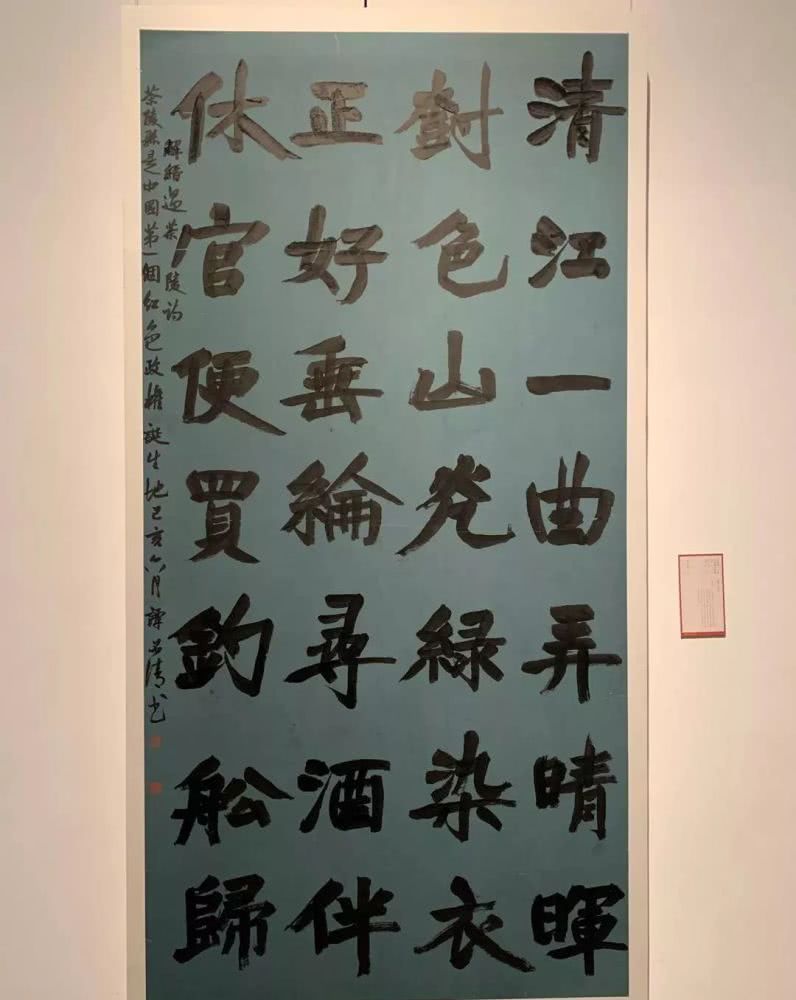 清江一曲弄晴暉
對色山光綠染衣
正好垂綸尋酒伴
休官便買釣舩歸
解縉過茶陵詩
茶陵縣是中國第一個紅色政權誕生地己亥六月譚
清书